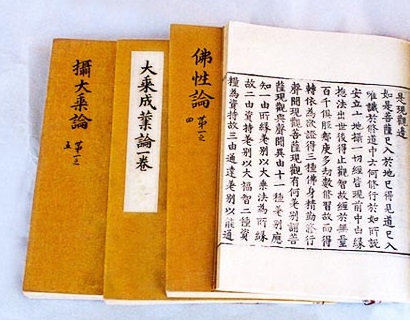 是現觀邊
如是菩薩已入於地已得見道已入
唯識於修道中云何修行於如所說
安立十地攝一切經皆現前中由緣
總法出世後得止觀智故經於無量
百千俱胝那庾多劫數修習故而得
轉依為欲證得三種佛身精勤修行
聲聞現觀菩薩現觀有何差別謂菩
薩現觀與聲聞異由十一種差別應
知一由所緣差別以大乘法為所緣
故二由資持差別以大福智二種資
糧為資持故三由通達差別以能通
佛性論 第一之四
大乘成業論一卷
攝大乘論 第一之五